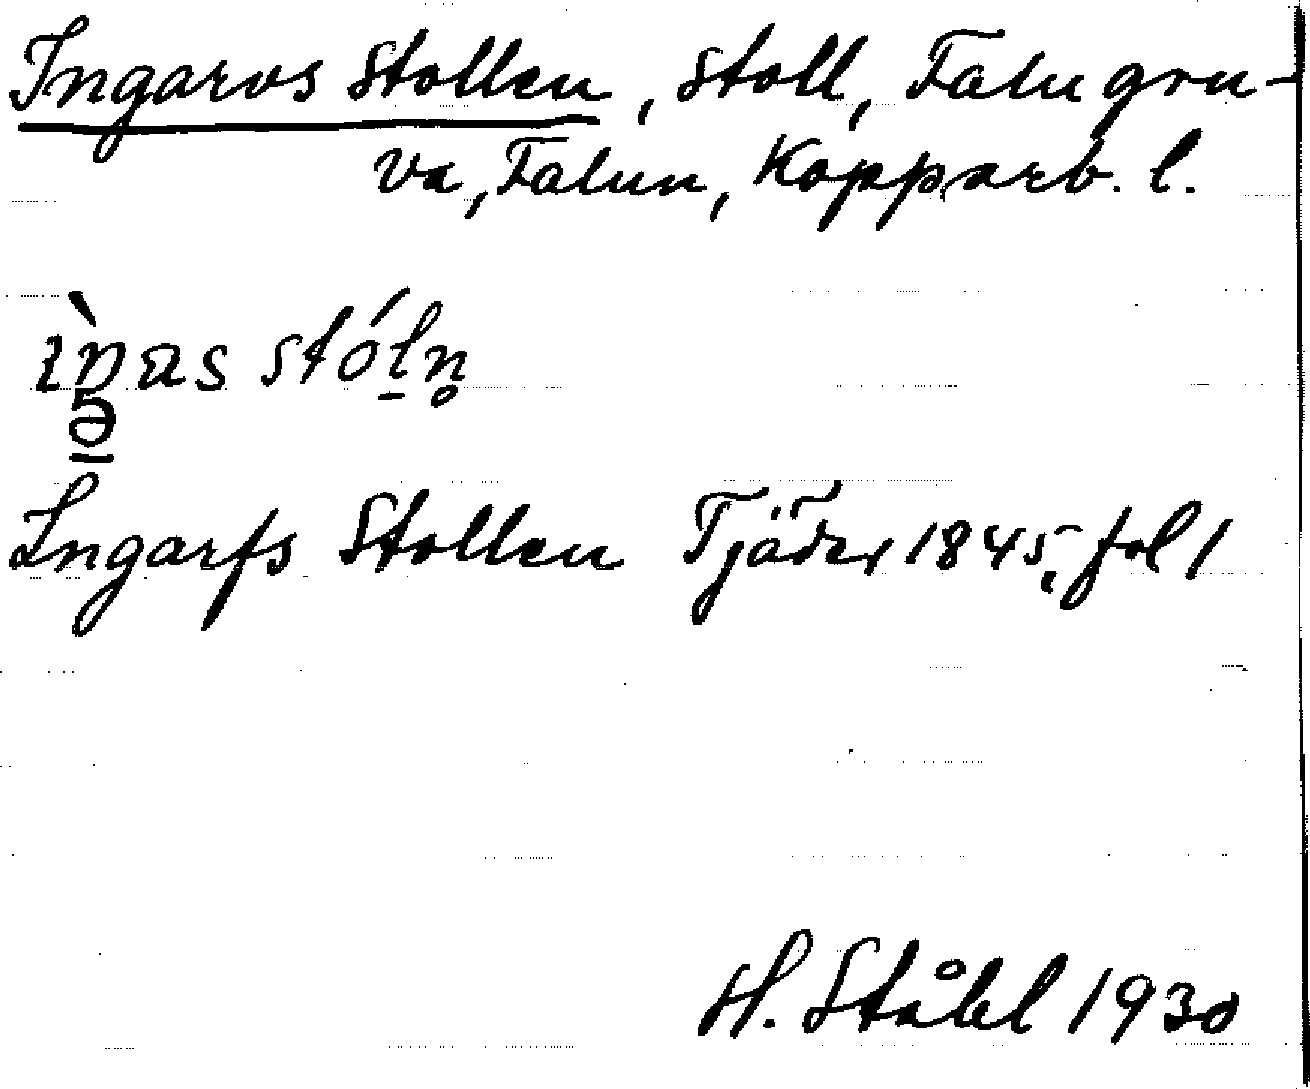 Ingarvs Stollen, stoll, Falu gru-
va, Falun, Kopparb. l.
ɩ̀ŋas stóḻn̥
ə̱
Ingarfs Stollen Tjäder 1845, fol 1
H. Ståhl 1930